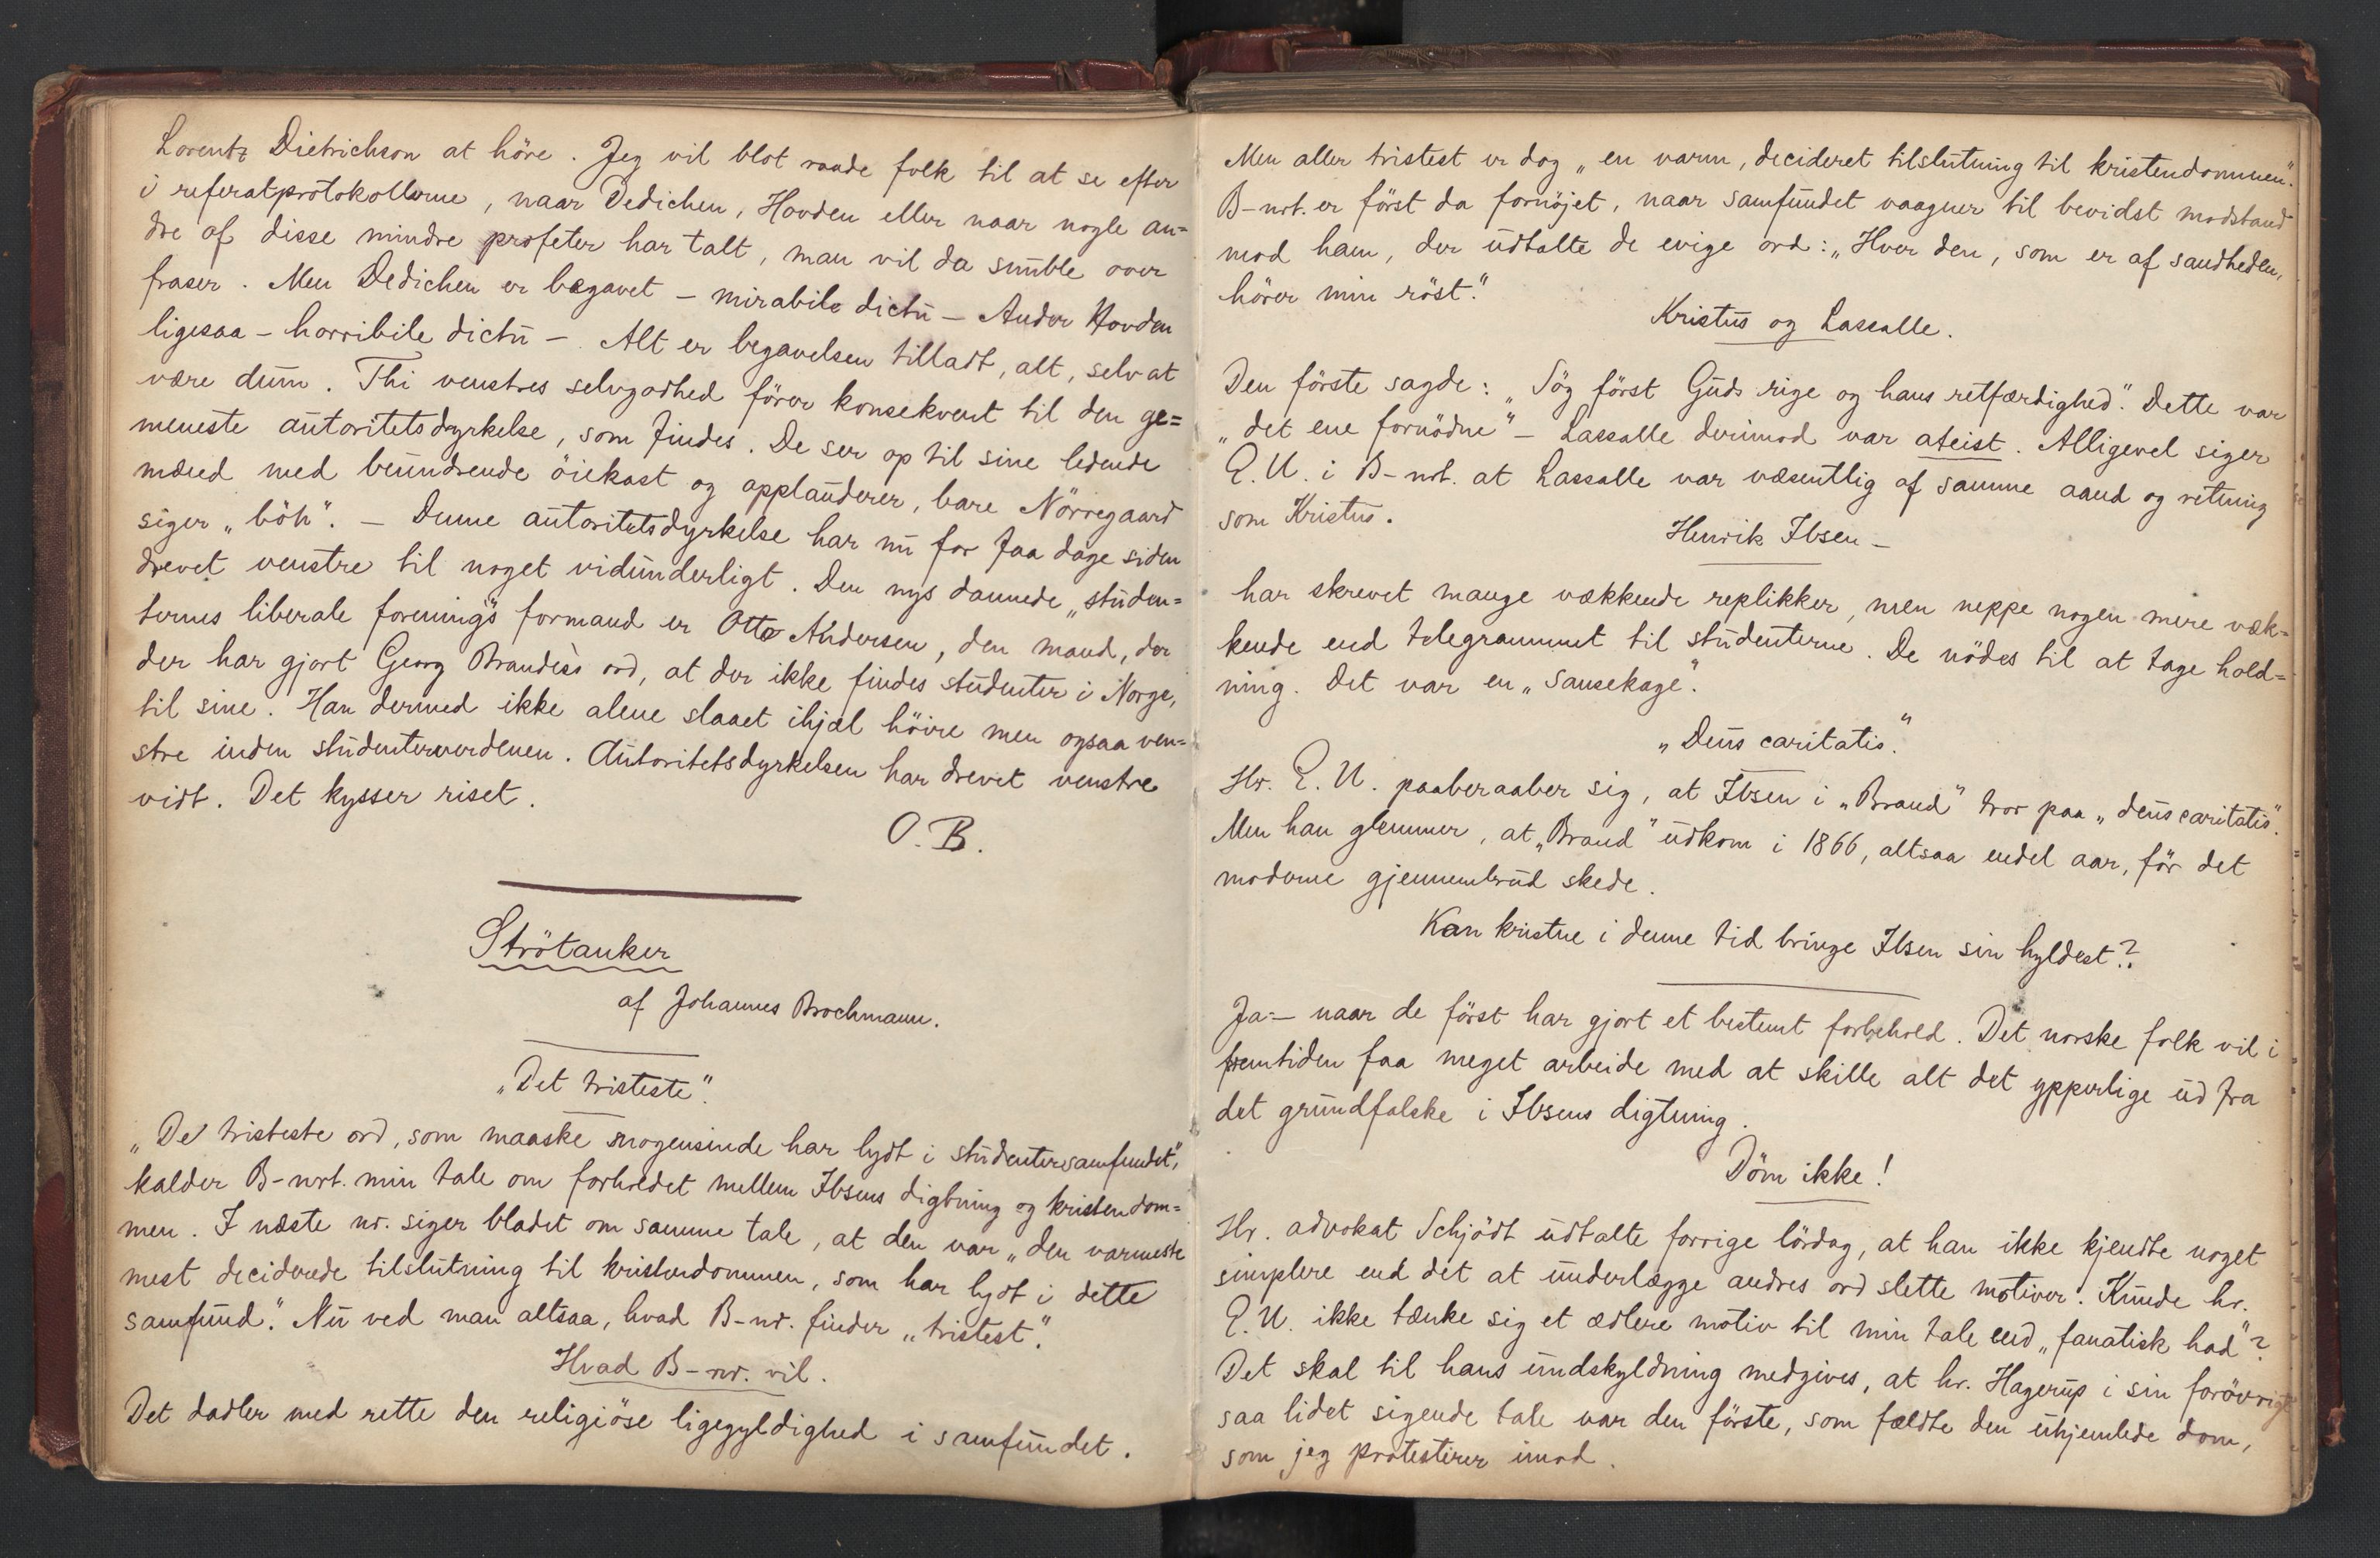 Lorentz Dietrichson at höre. Jeg vil blot raade folk til at se efter
i referatprotokollerne, naar Dedichen, Hovden eller naar nogle an=
dre af disse mindre profeter har talt, man vil da snuble over
fraser. Men Dedichen er begavet – mirabile dictu – Anders Hovden
ligesaa – horribile dictu –. Alt er begavelsen tilladt, alt, selv at
være dum. Thi venstres selvgodhed förer konsekvent til den ge=
meneste autoritetsdyrkelse, som findes. De ser op til sine ledende
mænd med beundrende öiekast og applauderer, bare Nörregaard
siger „böh“. – Denne autoritetsdyrkelse har nu for faa dage siden
drevet venstre til noget vidunderligt. Den nys dannede „studen=
ternes liberale forening“s formand er Otto Andersen, den mand, der
der har gjort Georg Brandes's ord, at der ikke findes studenter i Norge,
til sine. Han dermed ikke alene slaaet ihjæl höire men ogsaa ven=
stre inden studenterverdenen. Autoritetsdyrkelsen har drevet venstre
vidt. Det kysser riset.
O. B.
Strötanker
af Johannes Brochmann.
„Det tristeste“.
„De tristeste ord, som maaske nogensinde har lydt i studentersamfundet“,
kalder B-nrt. min tale om forholdet mellem Ibsens digtning og kristendom=
men. I næste nr. siger bladet om samme tale, at den var „den varmeste
mest deciderede tilslutning til kristendommen, som har lydt i dette
samfund“. Nu ved man altsaa, hvad B-nr. finder „tristest“.
Hvad B-nr. vil.
Det dadler med rette den religiöse ligegyldighed i samfundet.
Men aller tristest er dog „en varm, decideret tilslutning til kristendommen“.
B-nrt. er först da fornöjet, naar samfundet vaagner til bevidst modstand
mod ham, der udtalte de evige ord: „Hver den, som er af sandheden,
hörer min röst.“
Kristus og Lassalle.
Den förste sagde: „Sög först Guds rige og hans retfærdighed“. Dette var
„det ene fornödne“ – Lassalle derimod var ateist. Alligevel siger
E. U. i B-nrt. at Lassalle var væsentlig af samme aand og retning
som Kristus.
Henrik Ibsen –
har skrevet mange vækkende replikker, men neppe nogen mere væk=
kende end telegrammet til studenterne. De nödes til at tage hold=
ning. Det var en „Sausekage“.
„Deus caritatis.“
Hr. E. U. paaberaaber sig, at Ibsen i „Brand“ tror paa „deus caritatis“.
Men han glemmer, at „Brand“ udkom i 1866, altsaa endel aar, för det
moderne gjennembrud skede.
Kan kristne i denne tid bringe Ibsen sin hyldest?
Ja – naar de först har gjort et bestemt forbehold. Det norske folk vil i
fremtiden faa meget arbeide med at skille alt det ypperlige ud fra
det grundfalske i Ibsens digtning.
Döm ikke!
Hr. advokat Schjödt udtalte forrige lördag, at han ikke kjendte noget
simplere end det at underlægge andres ord slette motiver. Kunde hr.
E. U. ikke tænke sig et ædlere motiv til min tale end „fanatisk had“?
Det skal til hans undskyldning medgives, at hr. Hagerup i sin forövrigt
saa lidet sigende tale var den förste, som fældte den uhjemlede dom,
som jeg protesterer imod.